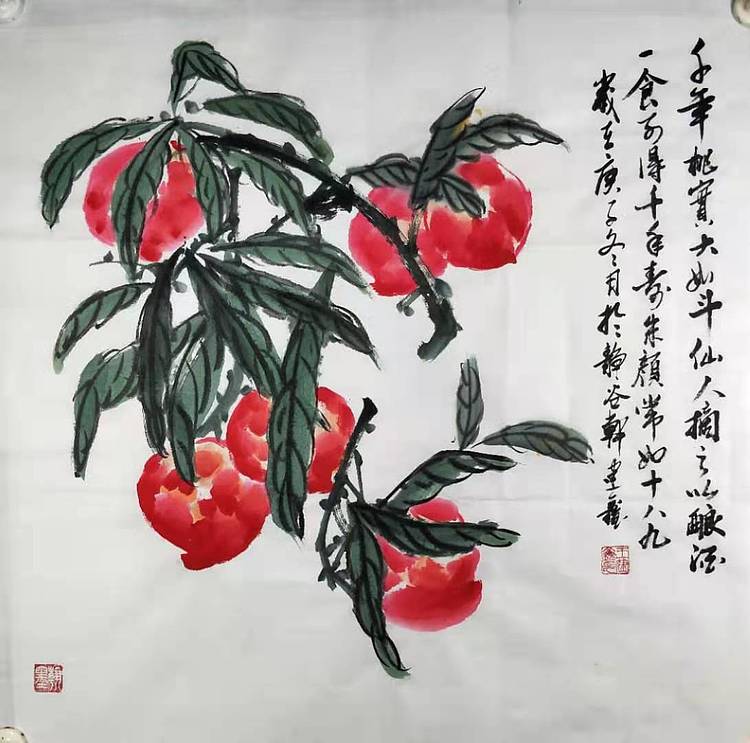 千年桃實大如斗仙人摘之以釀酒
一食可得千年壽朱顏常如十八九
歲在庚子冬月於靜谷軒建